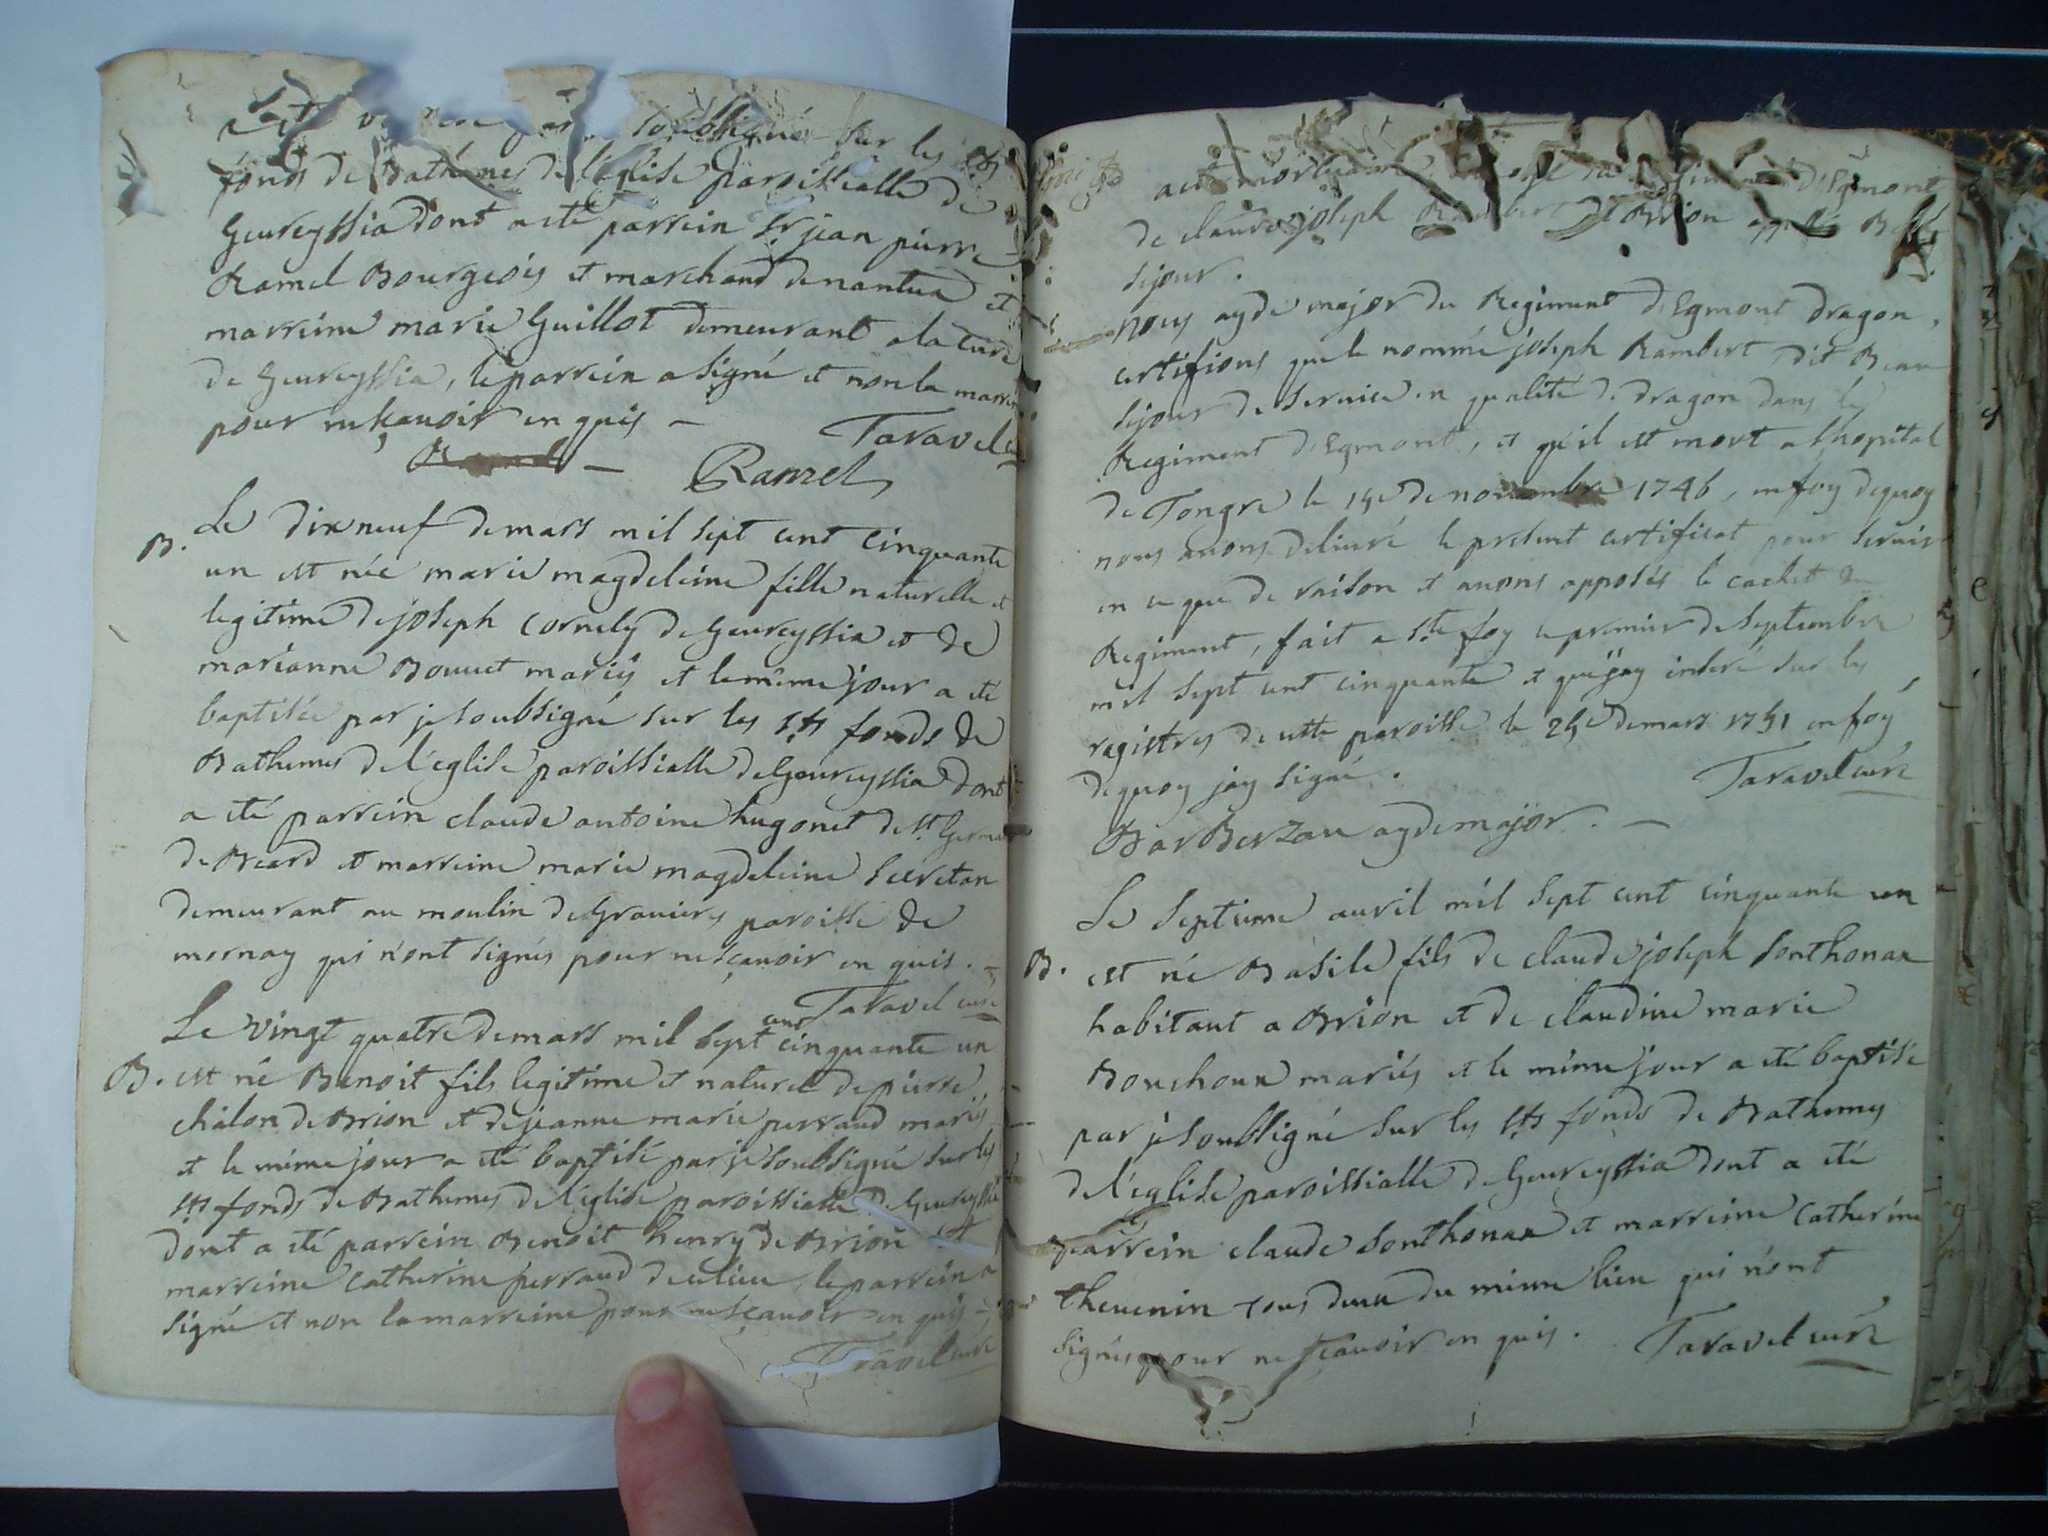 a été par soubsigné sur les sts
fonds de Bathemes de l'église paroissialle de
Geureyssia dont a été parrein Sr jean pierre
Ramel Bourgeois et marchand de nantua et
marreine marie Guillot demeurant a la Cure
de Geureyssia, le parrein a signé et non la marreine
pour ne sçavoir en quis —
Taravel
Ramel
B. Le dix neuf de mars mil sept cent cinquante
un est née marie magdeleine fille naturelle et
legitime de joseph Cornely de Geureyssia et de
marianne Bouuet mariés et le même jour a été
baptisée par je soubsigné sur les sts fonds de
Bathemes de l'eglise paroissialle de Geureyssia dont
a été parrein claude antoine hugonet de st Germain
de Beard et marreine marie magdeleine Secretan
demeurant au moulin de Grauiers paroisse de
mornay qui n'ont signés pour ne sçauoir en quis. —
Taravel curé
Le vingt quatre de mars mil sept cent cinquante un
B. est né Benoit fils legitime et naturel de pierre
chalon de Brion et de jeanne marie perraud mariés
et le même jour a été baptisé par je soubsigné sur les
sts fonds de Bathemes de l'eglise paroissialle de Geureyssia
dont a été parrein Benoit henry de Brion et
marreine catherine perraud du lieu, le parrein a
signé et non la marreine pour ne sçauoir en quis —
Taravel curé
acte mortuaire d'Egmont
de claude joseph Rambert de Brion appellé Beau
sejour.
nous ayde major du Regiment d'Egmont dragon,
certifions que le nommé joseph Rambert dit Beau
sejour de seruice en qualité de dragon dans le
Regiment d'Egmont, et qu'il est mort a l'hopital
de Tongre le 15e de novembre 1746, en foy de quoy
nous auons deliuré le present certificat pour seruir
en ce que de raison et auons apposés le cachet du
Regiment, fait a ste foy ce premier de septembre
mil sept cent cinquante et que j'ay inseré sur les
registres de cette paroisse le 25e de mars 1751 en foy
de quoy jay signé.
Taravel curé
BarBerzau ayde major. —
Le septieme auril mil sept cent cinquante un
B. est né Basile fils de claude joseph Sonthonax
habitant a Brion et de claudine marie
Bouchoux mariés et le même jour a été baptisé
par je soubsigné sur les sts fonds de Bathemes
de l'eglise paroissialle de Geureyssia dont a été
parrein claude Sonthonax et marreine Catherine
theuenin tous deux du même lieu qui n'ont
signés pour ne sçauoir en quis. Taravel curé